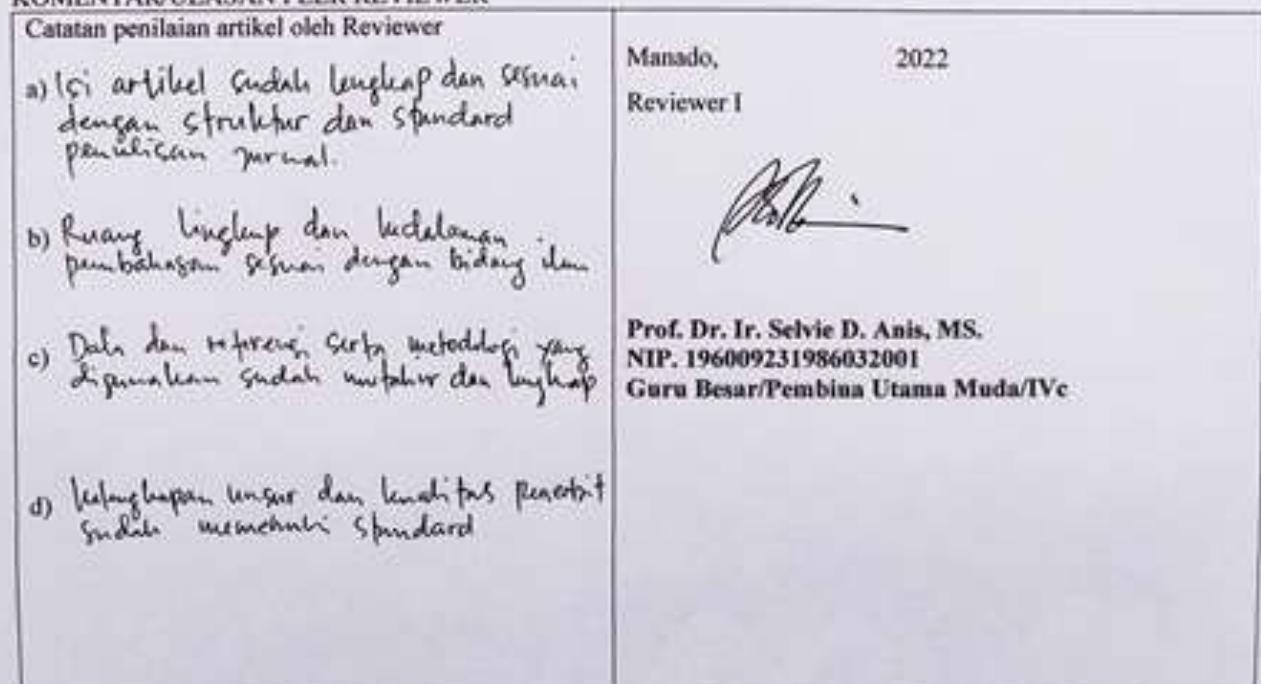 KOMENTAR/ULASAN PEER REVIEWER
Catatan penilaian artikel oleh Reviewer
a) Isi artikel sudah lengkap dan sesuai
dengan struktur dan standard
penulisan jurnal.
b) Ruang lingkup dan kedalaman
pembahasan sesuai dengan bidang ilmu
c) Data dan referensi serta metodologi yang
digunakan sudah mutahir dan lengkap
d) kelengkapan unsur dan kualitas penerbit
sudah memenuhi standard
Manado, 2022
Reviewer I
Prof. Dr. Ir. Selvie D. Anis, MS.
NIP. 196009231986032001
Guru Besar/Pembina Utama Muda/IVc